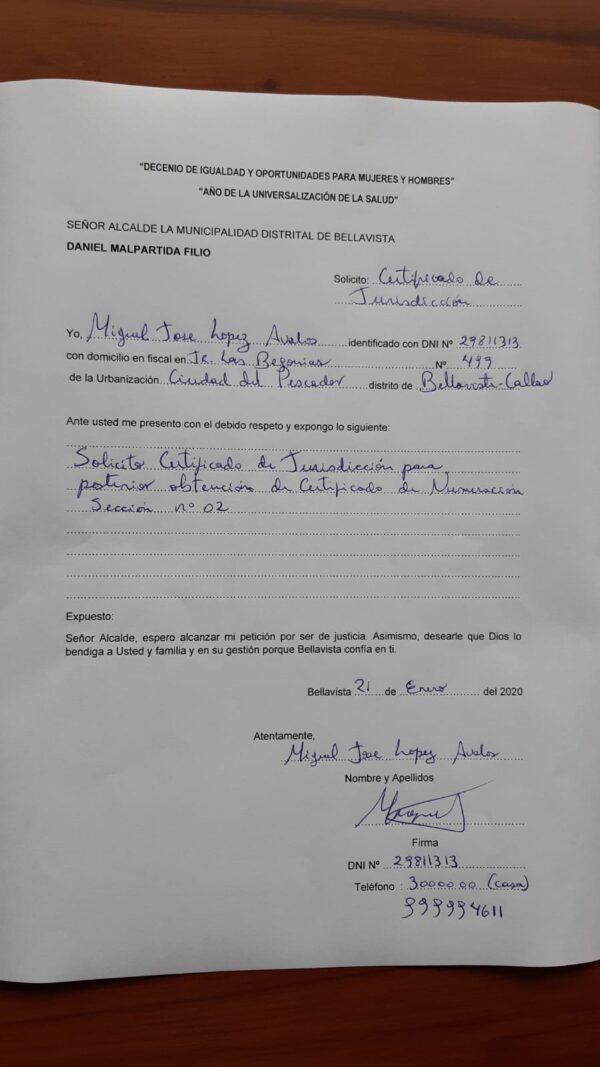 "DECENIO DE IGUALDAD Y OPORTUNIDADES PARA MUJERES Y HOMBRES"
"AÑO DE LA UNIVERSALIZACIÓN DE LA SALUD"
SEÑOR ALCALDE LA MUNICIPALIDAD DISTRITAL DE BELLAVISTA
DANIEL MALPARTIDA FILIO
Solicito: Certificado de
Jurisdicción
Yo, Miguel Jose Lopez Avalos identificado con DNI Nº 29811313
con domicilio en fiscal en Jr. Las Begonias Nº 499
de la Urbanización Ciudad del Pescador distrito de Bellavista-Callao
Ante usted me presento con el debido respeto y expongo lo siguiente:
Solicito Certificado de Jurisdicción para
posterior obtención de Certificado de Numeración
Sección nº 02
Expuesto:
Señor Alcalde, espero alcanzar mi petición por ser de justicia. Asimismo, desearle que Dios lo
bendiga a Usted y familia y en su gestión porque Bellavista confía en ti.
Bellavista 21 de Enero del 2020
Atentamente,
Miguel Jose Lopez Avalos
Nombre y Apellidos
Firma
DNI Nº 29811313
Teléfono : 3000000 (casa)
999994611